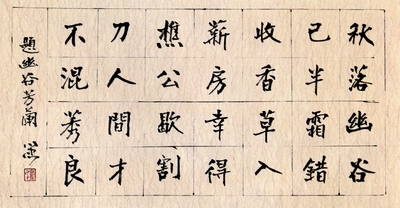 秋落幽谷
已半霜錯
收香草入
薪房幸得
樵公歇割
刀人間才
不混莠良
題幽谷芳蘭